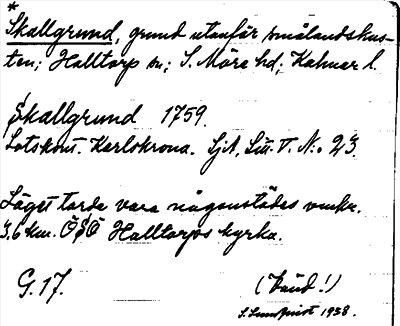 *
Skallgrund, grund utanför smålandskus-
ten; Halltorp sn; S. Möre hd; Kalmar l.
Skallgrund 1759.
Lotskont. Karlskrona. SjA, Litt. V. N:o 23.
Läget torde vara någonstädes omkr.
3,6 km. ÖSÖ Halltorps kyrka.
G. 17.
(bånd!)
S. Lundqvist 1938.